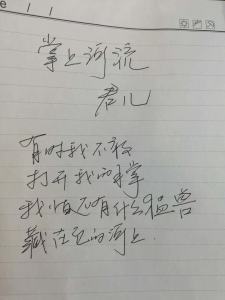 掌上河流
君儿
有时我不敢
打开我的手掌
我怕还有什么猛兽
藏在它的河上